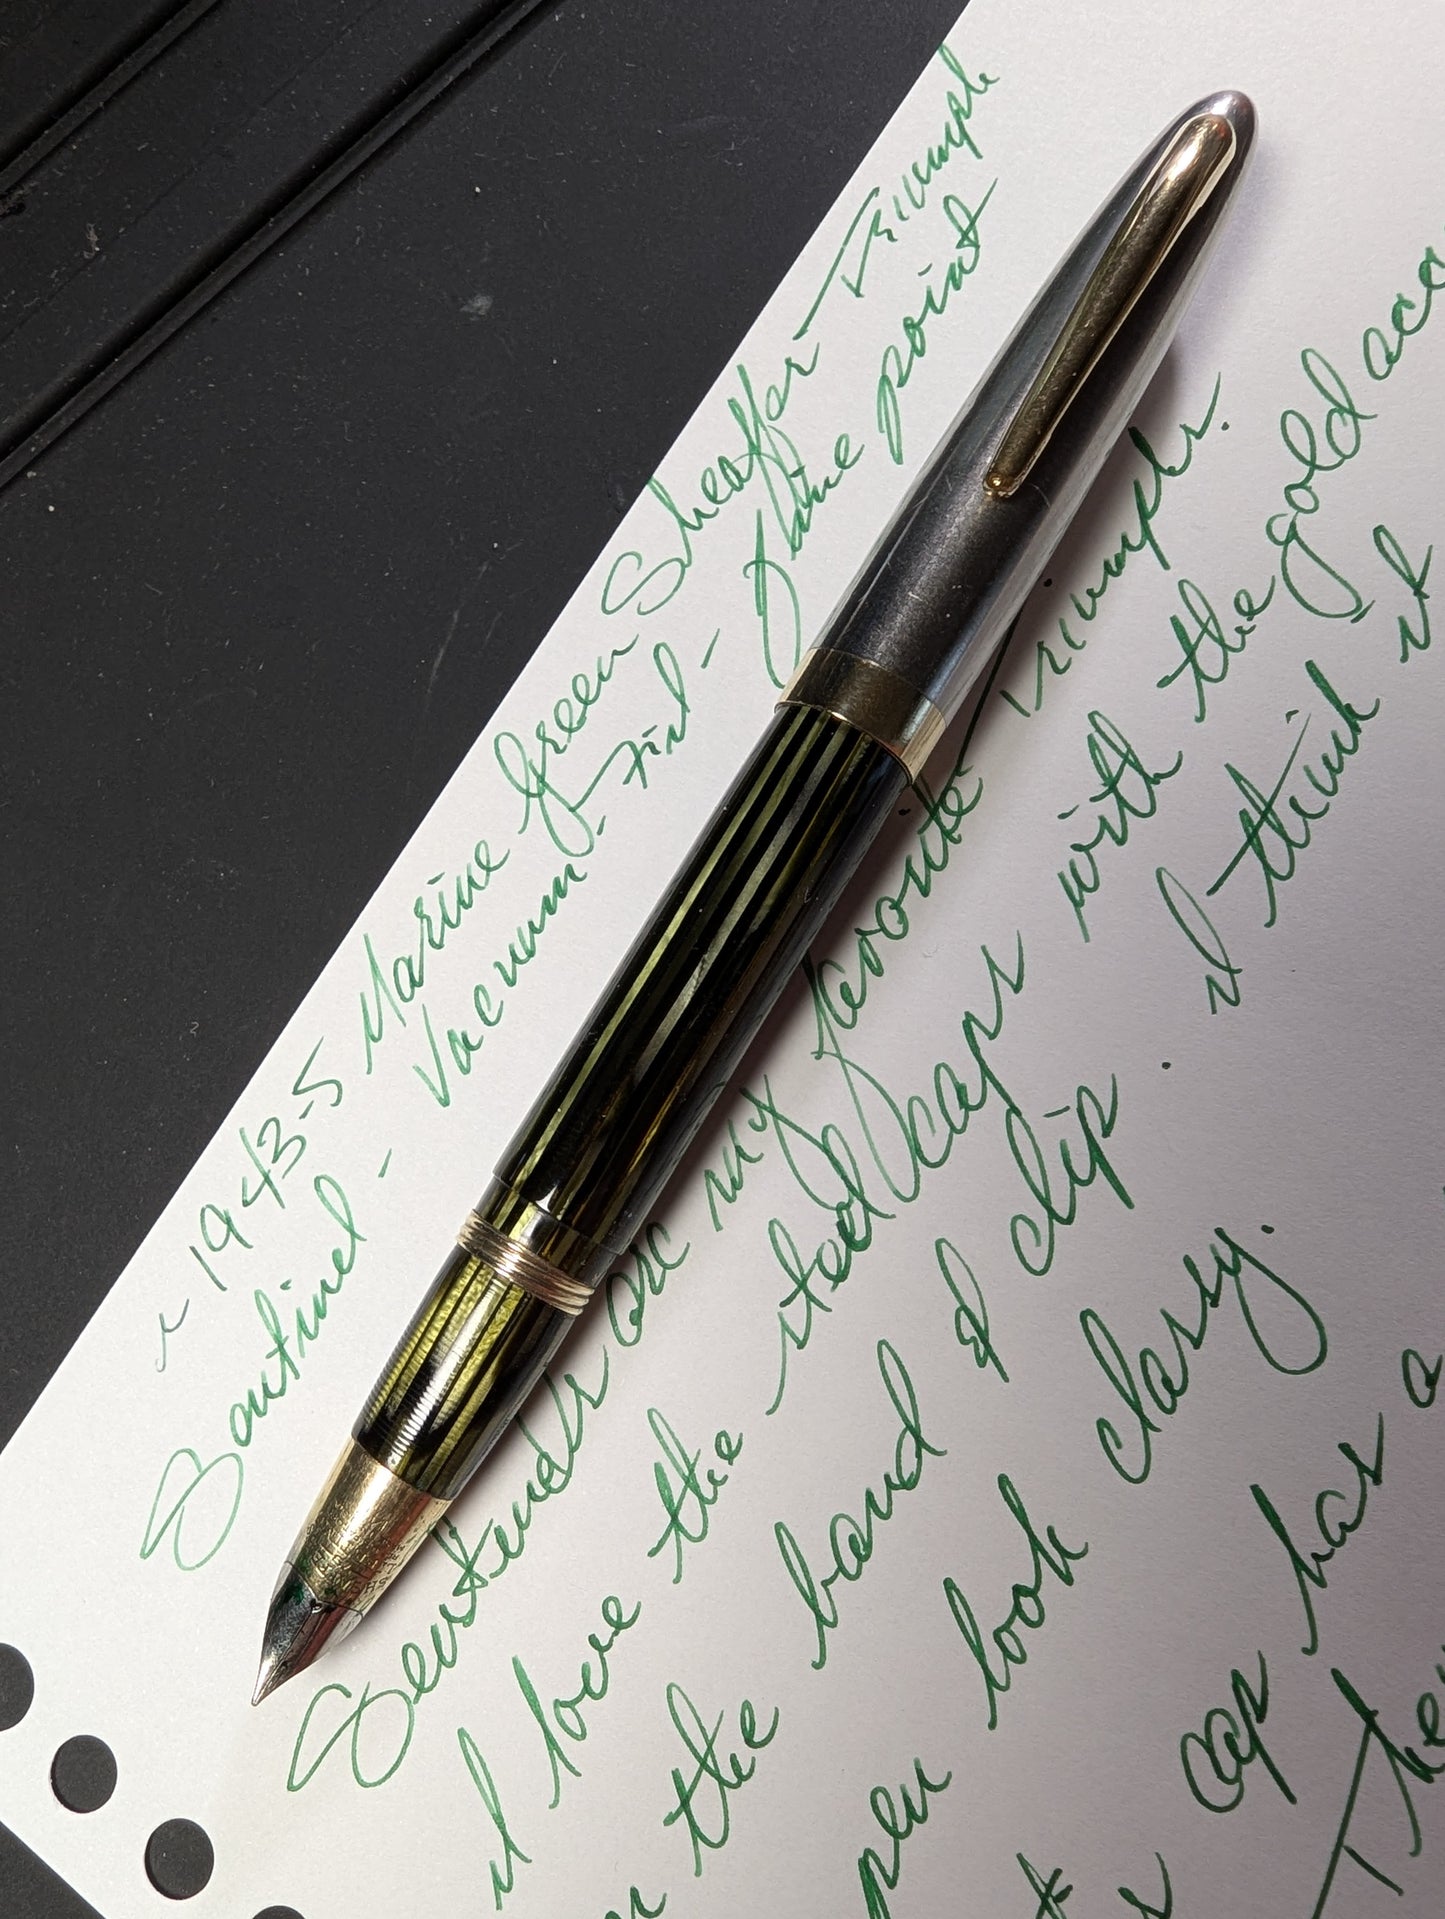 ~ 1943-5 Marine Green Sheaffer Triumph
Sentinel - Vacuum-Fil - Fine point
Sentinels are my favorite Triumphs.
I love the steel caps with the gold acc
on the band & clip. I think it
pen look classy.
cap has a
The
SHEAFFER'S